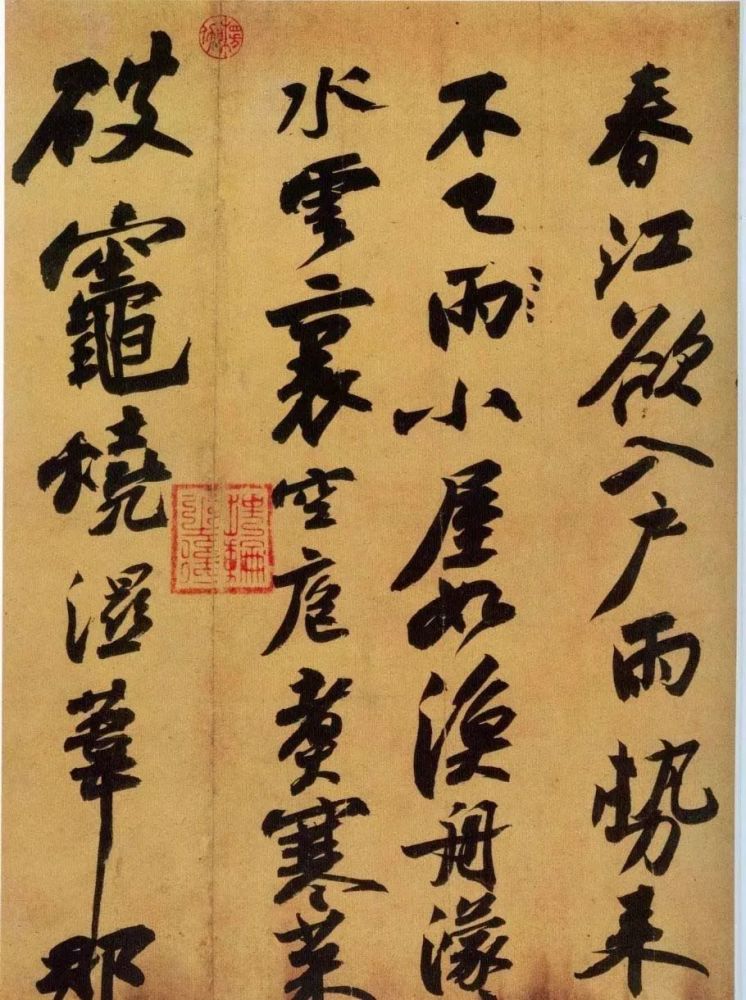 春江欲入户雨势来
不已雨小屋如渔舟濛
水雲裏空庖煮寒菜
破竈燒濕葦那